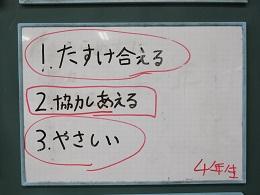 1.たすけ合える
2.協力しあえる
3.やさしい
4年生